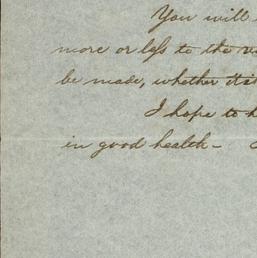 You will
more or less to the
be made, whether it is
I hope to h
in good health -